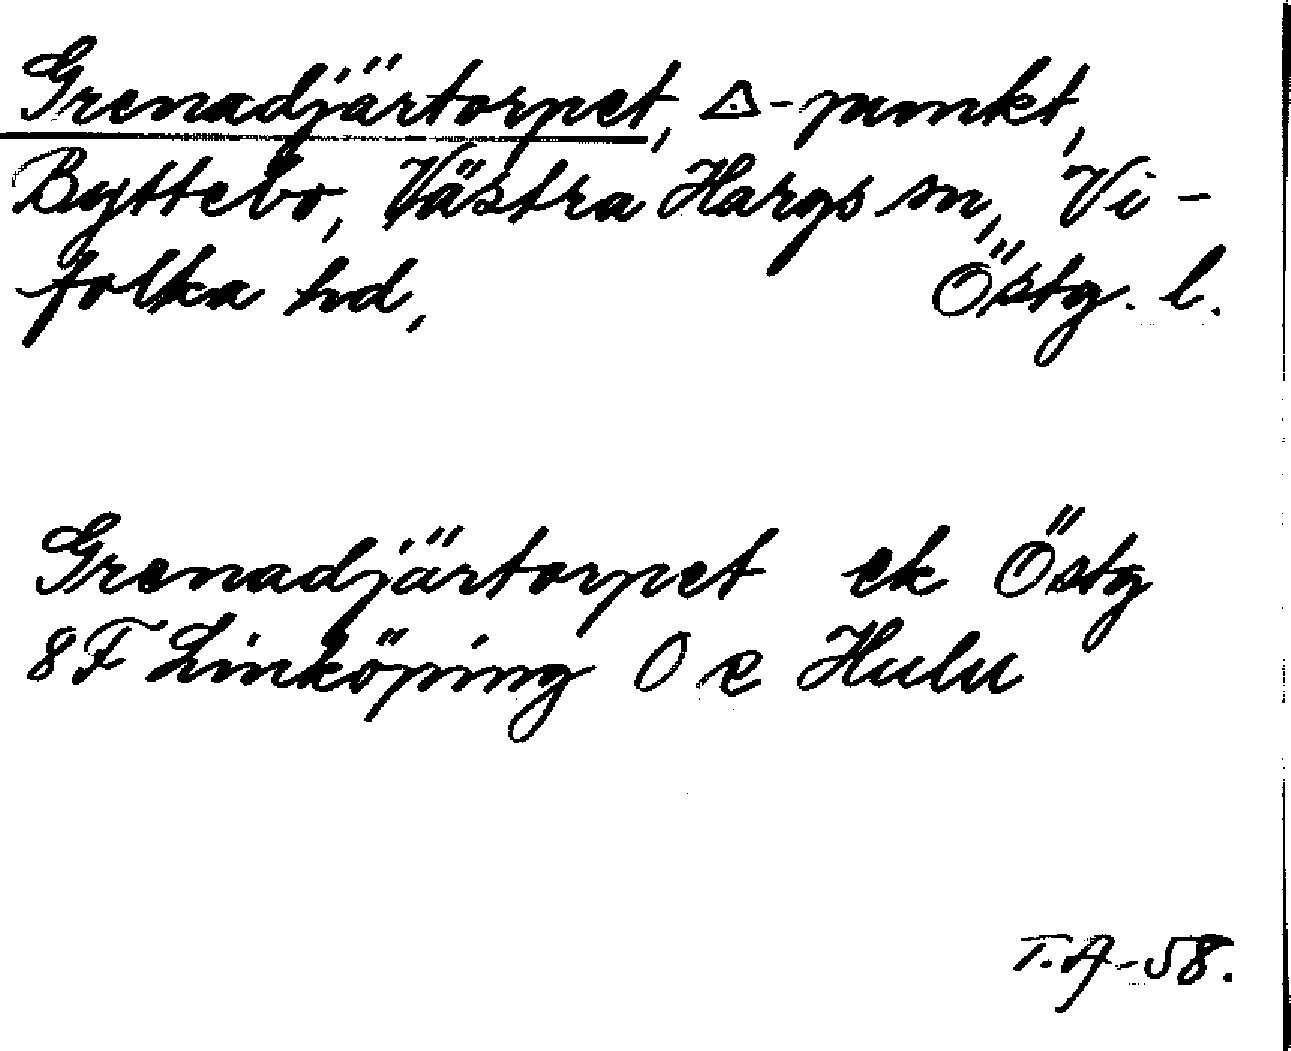 Grenadjärtorpet, △-punkt,
Byttebo, Västra Hargs sn, Vi-
folka hd, Östg. l.
Grenadjärtorpet ek Östg
8F Linköping 0 e Hulu
T.A-58.